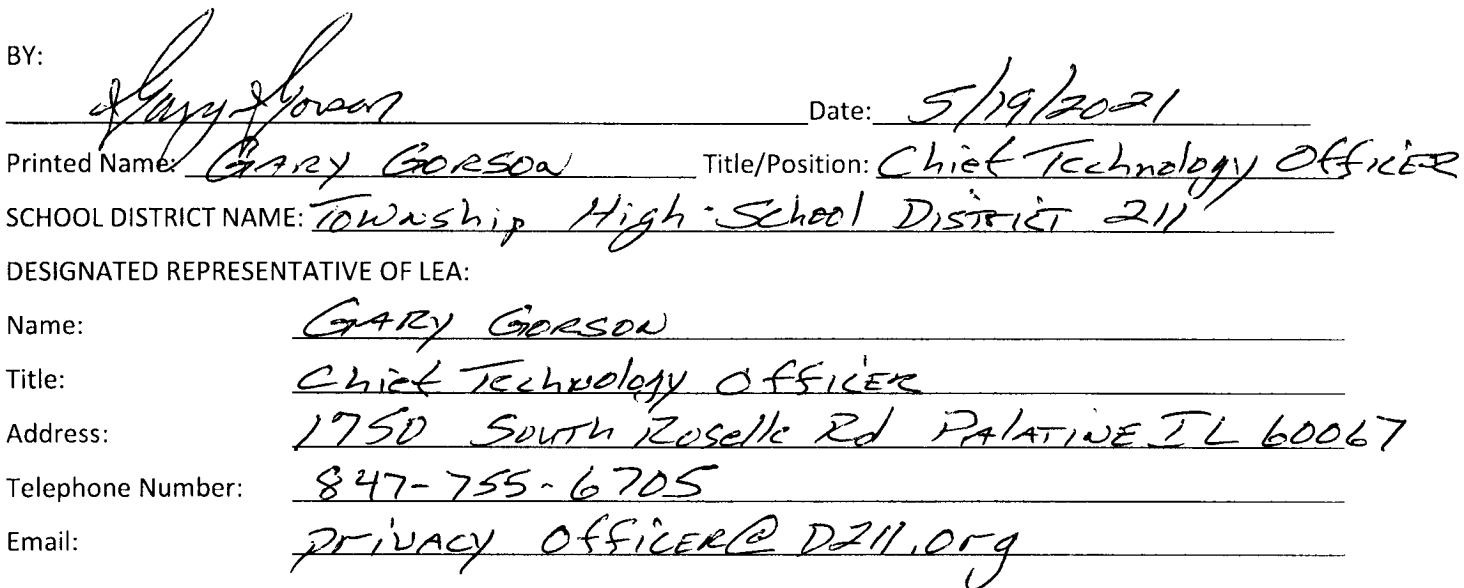 BY:
Gary Gorson Date: 5/19/2021
Printed Name: GARY GORSON Title/Position: Chief Technology OfficER
SCHOOL DISTRICT NAME: Township High School DISTRICT 211
DESIGNATED REPRESENTATIVE OF LEA:
Name: GARY GORSON
Title: Chief Technology OfficER
Address: 1750 South Roselle Rd PALATINE IL 60067
Telephone Number: 847-755-6705
Email: privACY OfficER@D211.org